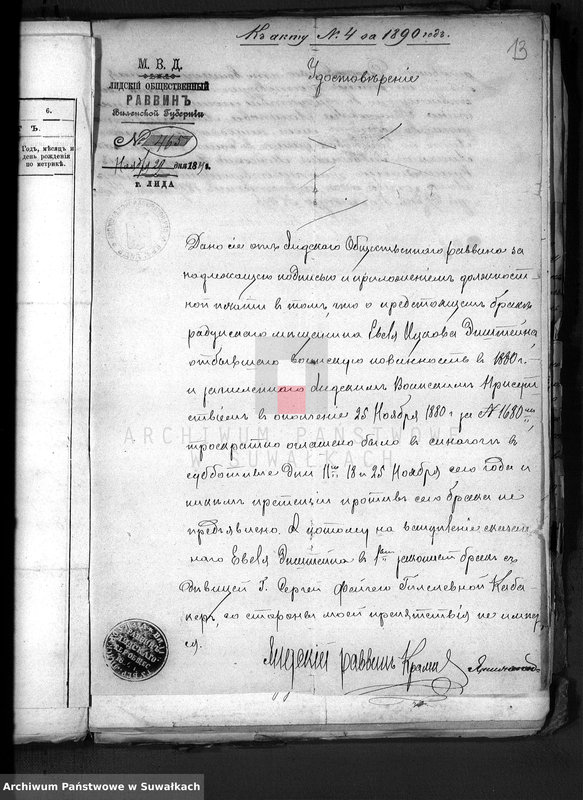 Къ акту № 4 за 1890 годъ.
13
М. В. Д.
ЛИДСКІЙ ОБЩЕСТВЕННЫЙ
РАВВИНЪ
Виленской Губерніи
№ 465
дня 18
г. ЛИДА
Удостовѣреніе
6.
Годъ, мѣсяцъ и
день рожденія
по метрикѣ.
Дано сіе отъ Лидскаго Общественнаго раввина за
надлежащею подписью и приложеніемъ должност-
ной печати въ томъ, что о предстоящемъ бракѣ
радунскаго мѣщанина Евеля Ицкова
отбывшаго воинскую повинность въ 1880 г.
и зачисленнаго Лидскимъ Воинскимъ Присут-
ствіемъ въ ополченіе 25 Ноября 1880 г за № 1680
троекратно оглашено было въ синагогѣ въ
субботніе дни 11го 18 и 25 Ноября сего года и
никѣмъ претензіи противъ сего брака не
предъявлено. А потому на вступленіе означен-
наго Евеля въ 1й законный бракъ съ
дѣвицей Г. Сергей
со стороны моей препятствія не имѣет-
ся.
Лидскій раввинъ
ARCHIWUM PAŃSTWOWE
W SUWAŁKACH
Archiwum Państwowe w Suwałkach